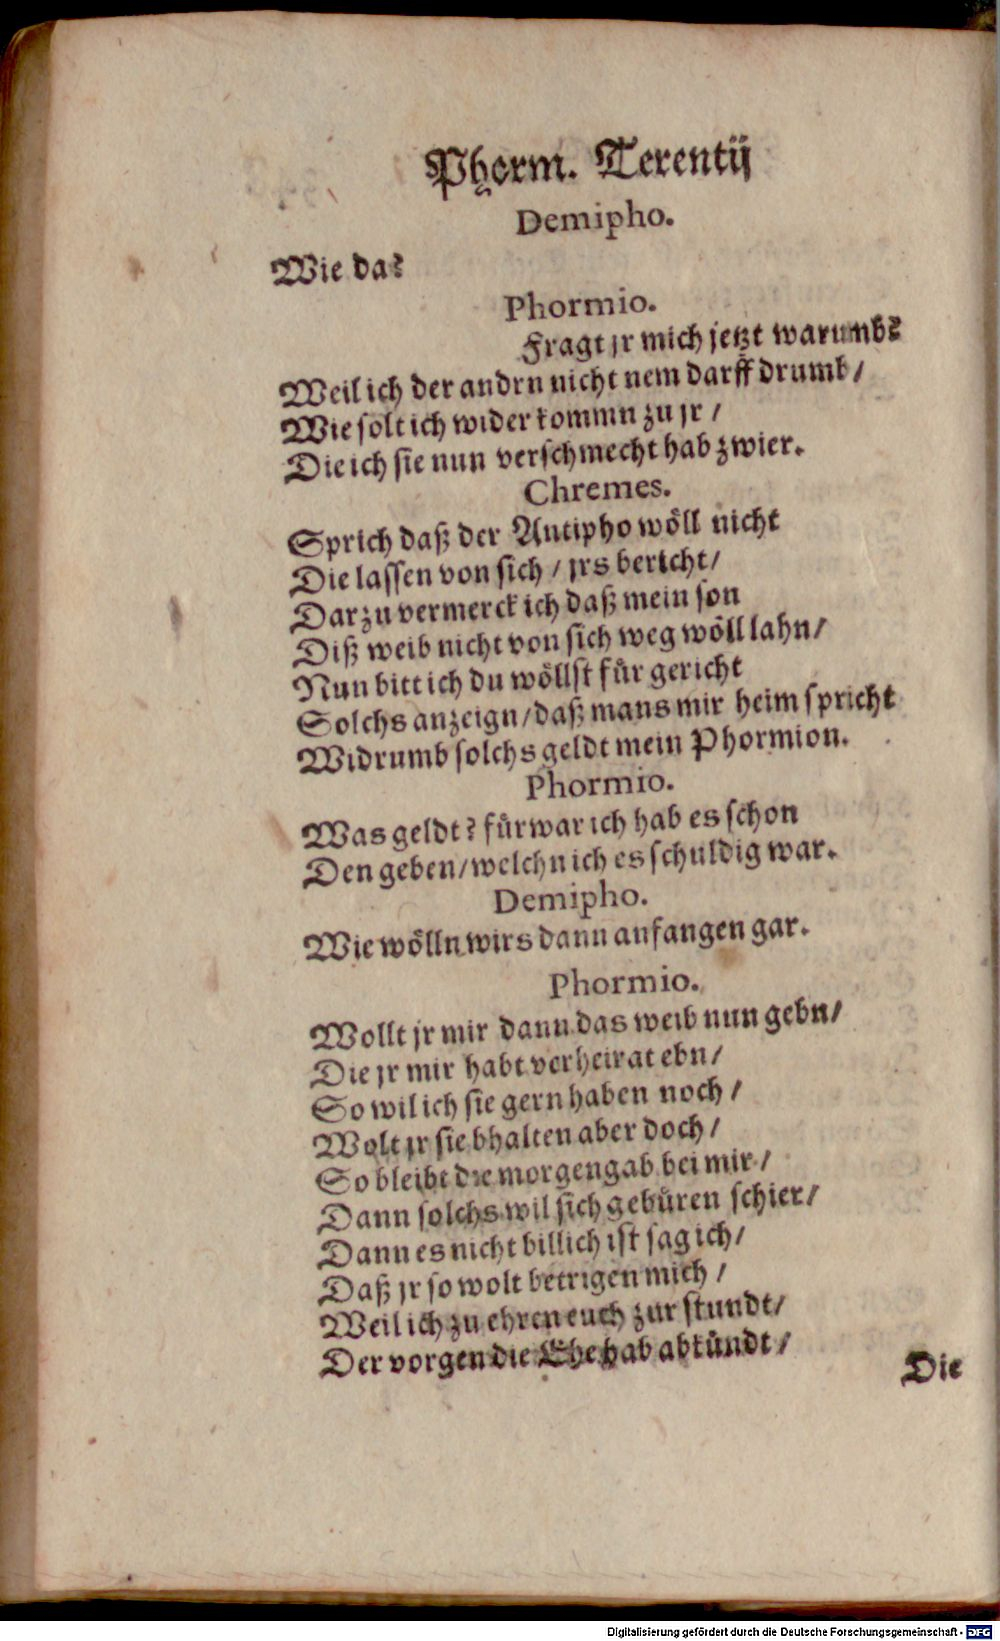 Phorm. Terentij
Demipho.
Wie da?
Phormio.
Fragt jr mich jetzt warumb?
Weil ich der andrn nicht nem darff drumb /
Wie solt ich wider kommn zu jr /
Die ich sie nun verschmecht hab zwier.
Chremes.
Sprich daß der Antipho wöll nicht
Die lassen von sich / jrs bericht /
Darzu vermerck ich daß mein son
Diß weib nicht von sich weg wöll lahn /
Nun bitt ich du wöllst für gericht
Solchs anzeign / daß mans mir heim spricht
Widrumb solchs geldt mein Phormion.
Phormio.
Was geldt? fürwar ich hab es schon
Den geben / welchn ich es schuldig war.
Demipho.
Wie wölln wirs dann anfangen gar.
Phormio.
Wollt jr mir dann das weib nun gebn /
Die jr mir habt verheirat ebn /
So wil ich sie gern haben noch /
Wolt jr sie bhalten aber doch /
So bleibt die morgengab bei mir /
Dann solchs wil sich gebüren schier /
Dann es nicht billich ist sag ich /
Daß jr so wolt betrigen mich /
Weil ich zu ehren euch zur stundt /
Der vorgen die Ehe hab abkündt /
Die
Digitalisierung gefördert durch die Deutsche Forschungsgemeinschaft - DFG